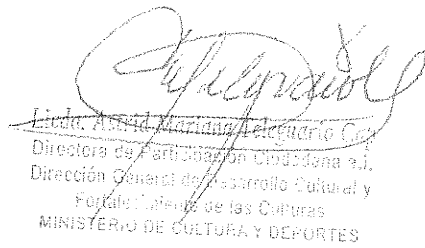 Licda. Astrid Mariana Teleguario Coj
Directora de Participación Ciudadana a.i.
Dirección General de Desarrollo Cultural y
Fortalecimiento de las Culturas
MINISTERIO DE CULTURA Y DEPORTES